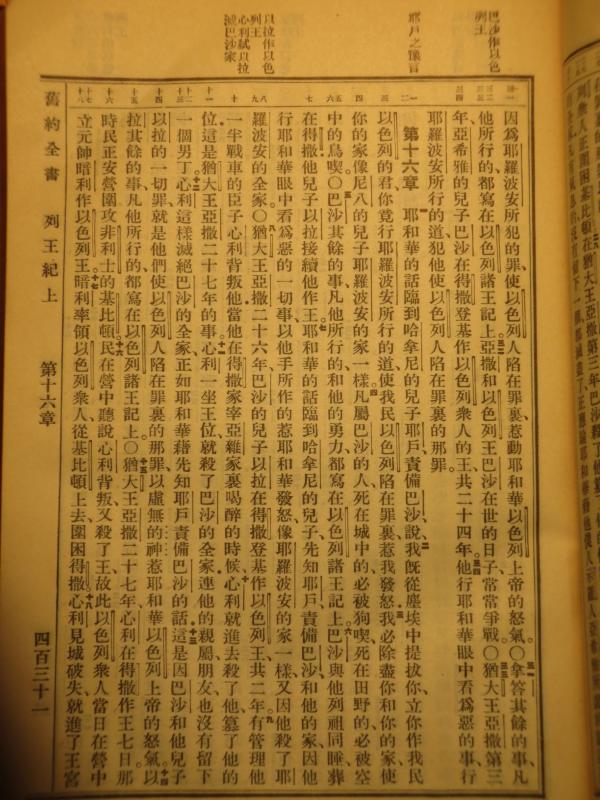 巴沙作以色
列王
耶戶之豫言
以拉作以色
列王
心利弒以拉
滅巴沙家
因爲耶羅波安所犯的罪使以色列人陷在罪裏惹動耶和華以色列上帝的怒氣〇拿答其餘的事凡
他所行的都寫在以色列諸王記上亞撒和以色列王巴沙在世的日子常常爭戰〇猶大王亞撒第三
年亞希雅的兒子巴沙在得撒登基作以色列衆人的王共二十四年他行耶和華眼中看爲惡的事行
耶羅波安所行的道犯他使以色列人陷在罪裏的那罪
第十六章 耶和華的話臨到哈拿尼的兒子耶戶責備巴沙說我旣從塵埃中提拔你立你作我民
以色列的君你竟行耶羅波安所行的道使我民以色列陷在罪裏惹我發怒我必除盡你和你的家使
你的家像尼八的兒子耶羅波安的家一樣凡屬巴沙的人死在城中的必被狗喫死在田野的必被空
中的鳥喫〇巴沙其餘的事凡他所行的和他的勇力都寫在以色列諸王記上巴沙與他列祖同睡葬
在得撒他兒子以拉接續他作王耶和華的話臨到哈拿尼的兒子先知耶戶責備巴沙和他的家因他
行耶和華眼中看爲惡的一切事以他手所作的惹耶和華發怒像耶羅波安的家一樣又因他殺了耶
羅波安的全家〇猶大王亞撒二十六年巴沙的兒子以拉在得撒登基作以色列王共二年有管理他
一半戰車的臣子心利背叛他當他在得撒家宰亞雜家裏喝醉的時候心利就進去殺了他篡了他的
位這是猶大王亞撒二十七年的事心利一坐王位就殺了巴沙的全家連他的親屬朋友也沒有留下
一個男丁心利這樣滅絕巴沙的全家正如耶和華藉先知耶戶責備巴沙的話這是因巴沙和他兒子
以拉的一切罪就是他們使以色列人陷在罪裏的那罪以虛無的神惹耶和華以色列上帝的怒氣以
拉其餘的事凡他所行的都寫在以色列諸王記上〇猶大王亞撒二十七年心利在得撒作王七日那
時民正安營圍攻非利士的基比頓民在營中聽說心利背叛又殺了王故此以色列衆人當日在營中
立元帥暗利作以色列王暗利率領以色列衆人從基比頓上去圍困得撒心利見城破失就進了王宮
舊約全書 列王紀上 第十六章 四百三十一